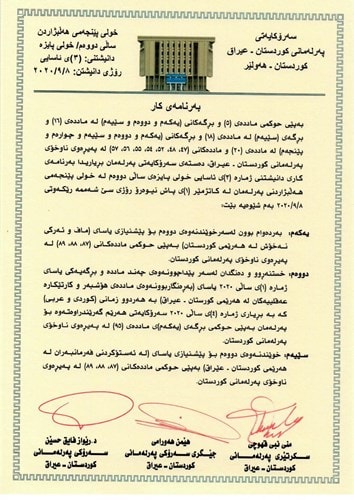 سەرۆکایەتی
پەرلەمانی کوردستان - عیراق
کوردستان - هەولێر
خولی پێنجەمی هەڵبژاردن
ساڵی دووەم/ خولی پایزە
دانیشتنی: (٣)ی ئاسایی
رۆژی دانیشتن: ٢٠٢٠/٩/٨
بەرنامەی کار
بەپێی حوکمی ماددەی (٥) و بڕگەکانی (یەکەم و دووەم و سێیەم)ی ماددەی (١٦) و
بڕگەی (سێیەم)ی ماددەی (١٨) و بڕگەکانی (یەکەم و دووەم و سێیەم و چوارەم و
پێنجەم)ی ماددەی (٢٠) و ماددەکانی (٤٧، ٤٨، ٥٢، ٥٤، ٥٥، ٥٦، ٥٧) لە پەیڕەوی ناوخۆی
پەرلەمانی کوردستان - عیراق، دەستەی سەرۆکایەتی پەرلەمان بڕیاریدا بەرنامەی
کاری دانیشتنی ژمارە (٣)ی ئاسایی خولی پایزەی ساڵی دووەم لە خولی پێنجەمی
هەڵبژاردنی پەرلەمان لە کاتژمێر (١)ی پاش نیوەڕۆ رۆژی سێ شەممە رێکەوتی
٢٠٢٠/٩/٨ بەم شێوەیە بێت:
یەکەم: بەردەوام بوون لەسەر خوێندنەوەی دووەم بۆ پێشنیازی یاسای (ماف و ئەرکی
نەخۆش لە هەرێمی کوردستان) بەپێی حوکمی ماددەکانی (٨٧، ٨٨، ٨٩) لە
پەیڕەوی ناوخۆی پەرلەمانی کوردستان.
دووەم: خستنەڕوو و دەنگدان لەسەر پێداچوونەوەی چەند ماددە و بڕگەیەکی یاسای
ژمارە (١)ی ساڵی ٢٠٢٠ یاسای (بەرەنگاربوونەوەی هۆشبەر و کارتێکارە
عەقڵییەکان لە هەرێمی کورستان - عیراق) بە هەردوو زمانی (کوردی و عربی)
کە بە بڕیارە ژمارە (٤)ی ساڵی ٢٠٢٠ سەرۆکایەتی هەرێم گەڕێنراوەتەوە بۆ
پەرلەمان بەپێی حوکمی بڕگەی (یەکەم)ی ماددەی (٩٥) لە پەیڕەوی ناوخۆی
پەرلەمانی کوردستان.
سێیەم: خوێندنەوەی دووەم بۆ پێشنیازی یاسای (لە ئەستۆکردنی فەرمانبەران لە
هەرێمی کورستان - عێراق) بەپێی ماددەکانی (٨٧، ٨٨، ٨٩) لە پەیڕەوی
ناوخۆی پەرلەمانی کوردستان.
منی نبی قهوچی
سکرتێری پەرلەمانی
کوردستان - عیراق
هێمن هەورامی
جێگری سەرۆکی پەرلەمانی
کوردستان - عیراق
د.رێواز فایق حسێن
سەرۆکی پەرلەمانی
کوردستان - عیراق